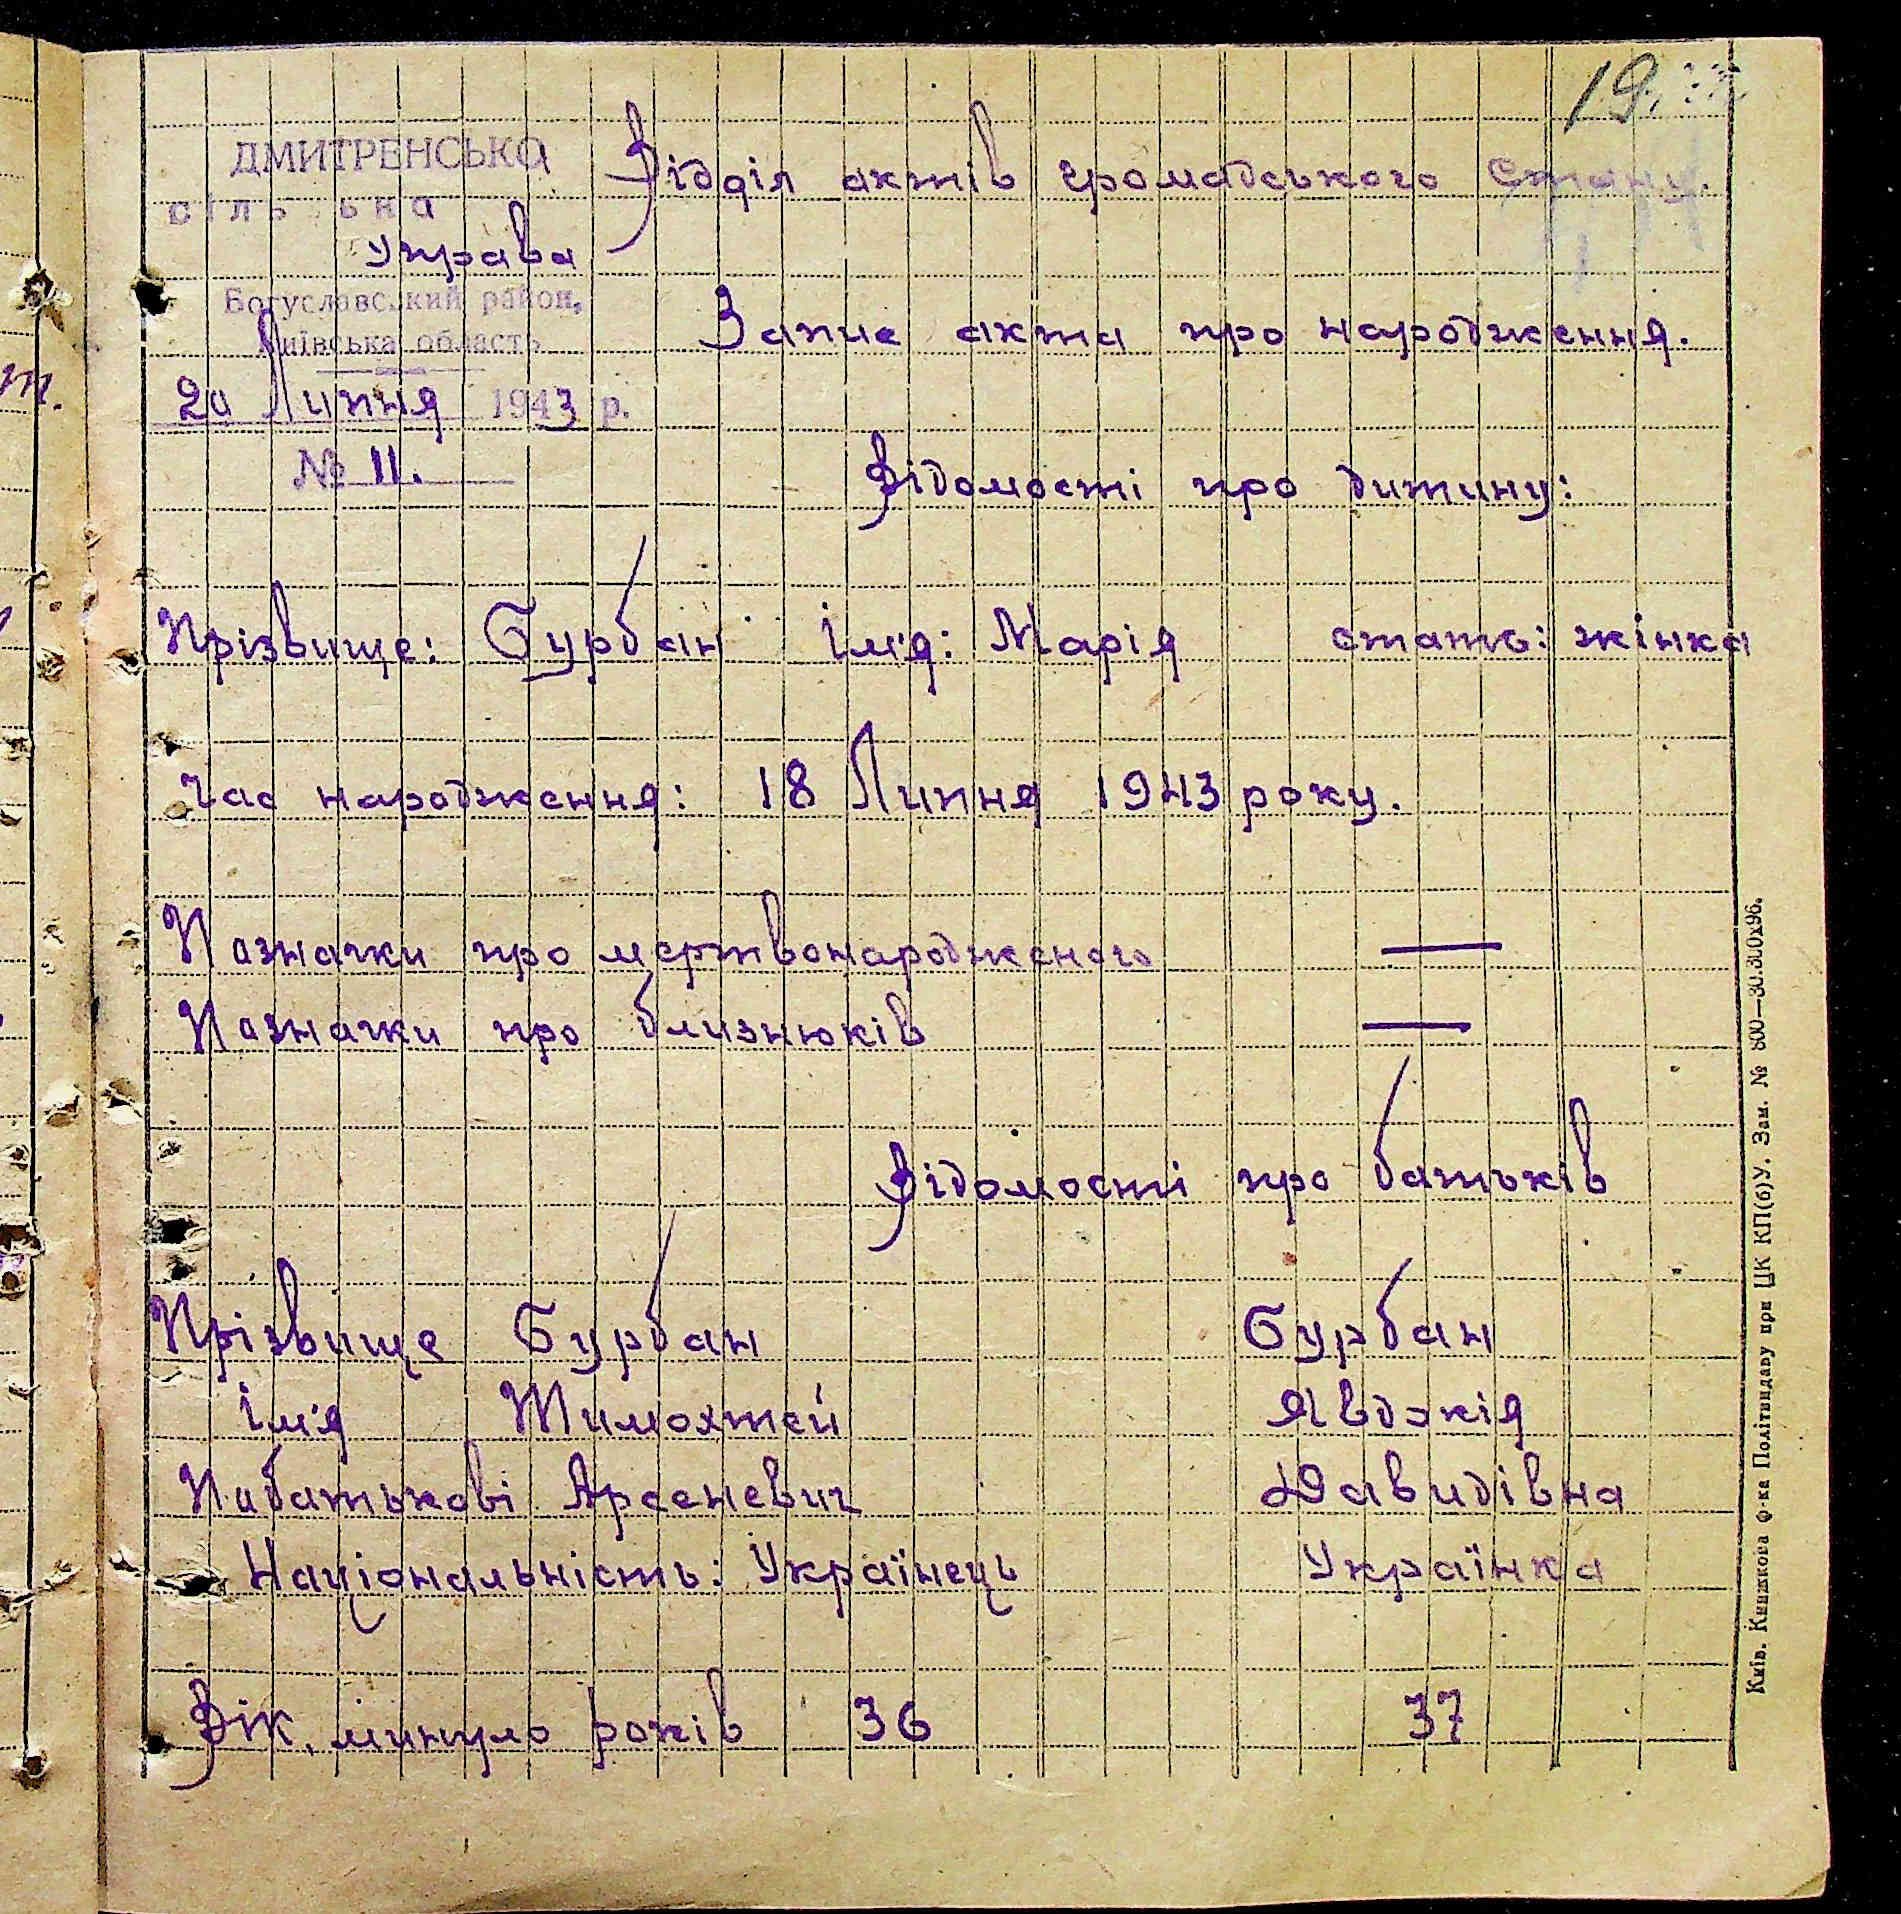 19.
ДМИТРЕНСЬКА
сіль ька
Управа
Богуславський район,
Київська область
20 Липня 1943 р.
№ 11.
Відділ актів громадського стану.
Запис акта про народження.
Відомості про дитину:
Прізвище: Бурбан Ім'я: Марія стать: жінка
Час народження: 18 Липня 1943 року.
Позначки про мертвонародженого —
Позначки про близнюків —
Відомості про батьків
Прізвище Бурбан Бурбан
Ім'я Тимохтей Явдокія
Побатькові Арсеневич Давидівна
Національність: Українець Українка
Вік, минуло років 36 37
Київ. Книжкова ф-ка Політвидаву при ЦК КП(б)У. Зам. № 800—30.300х96.
т.